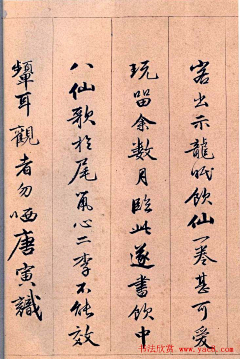 客出示龍眠飲仙一卷甚可愛
玩留余數月臨此遂書飲中
八仙歌於尾心二不能效
顰耳觀者勿哂唐寅識
书法欣赏
www.yac8.com